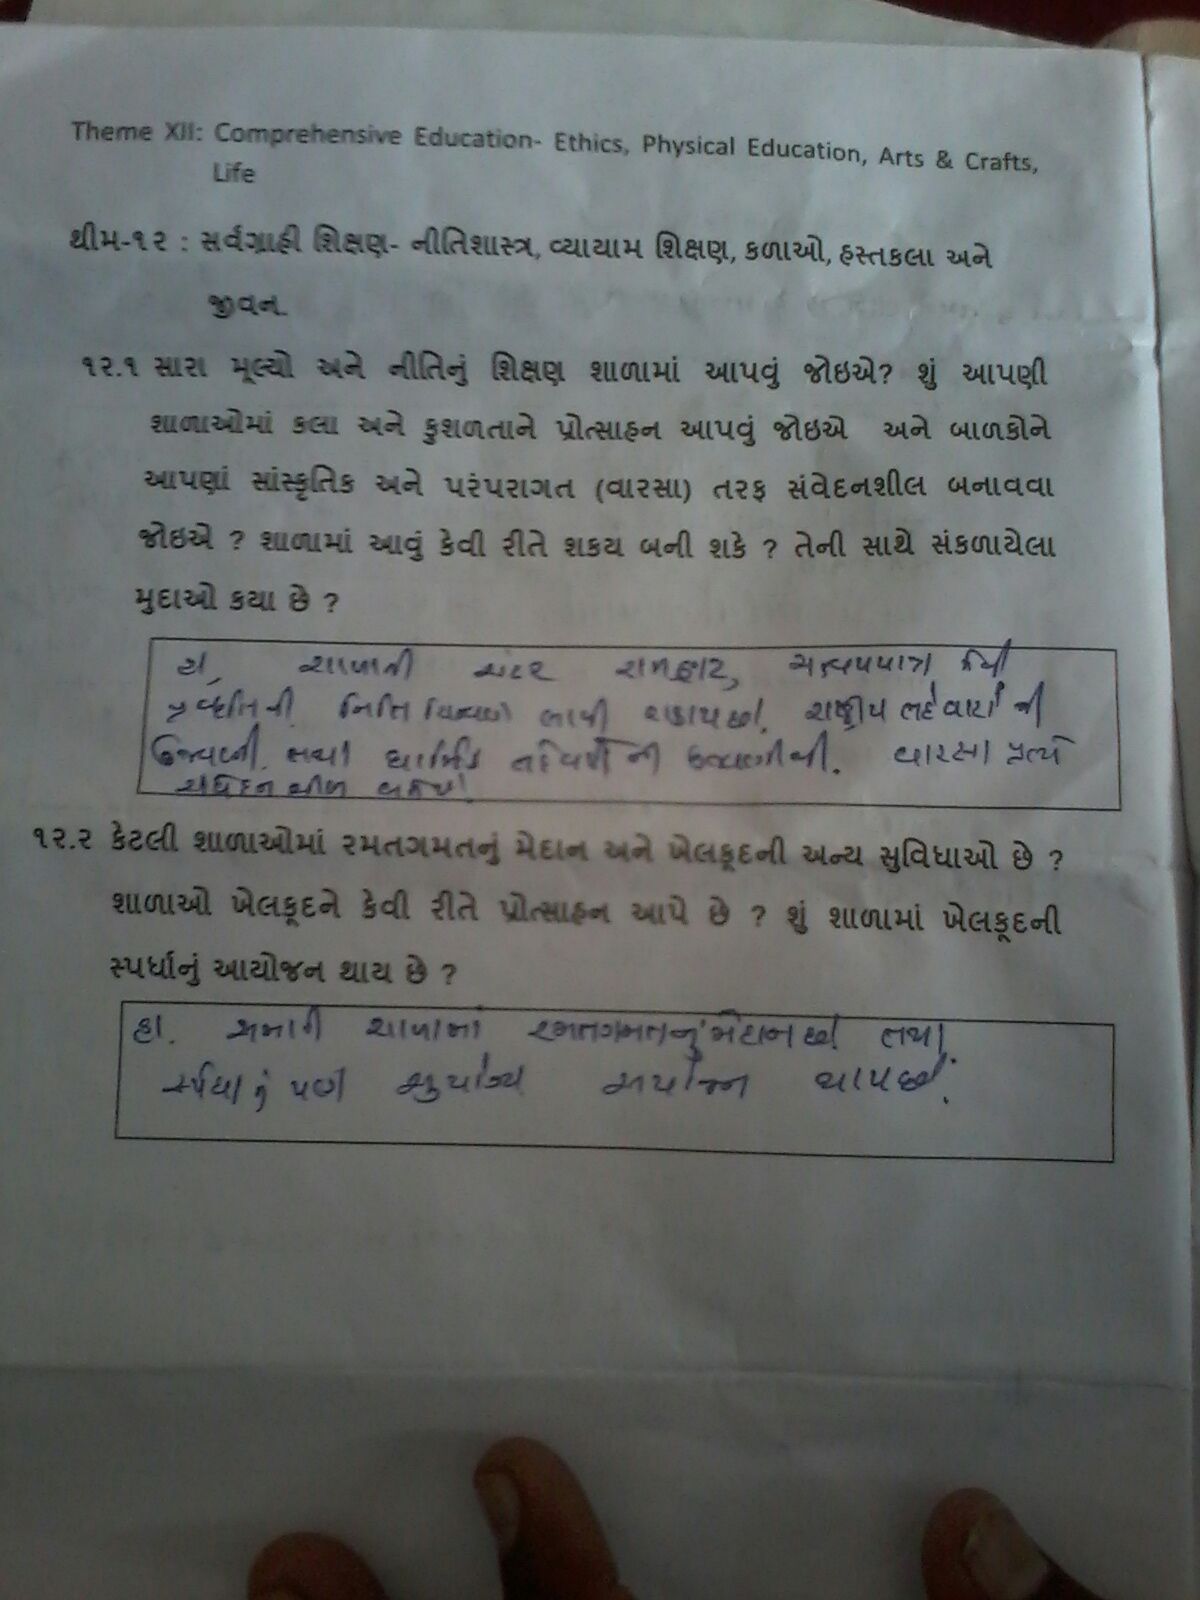 Theme XII: Comprehensive Education- Ethics, Physical Education, Arts & Crafts,
Life
થીમ-૧૨ : સર્વગ્રાહી શિક્ષણ- નીતિશાસ્ત્ર, વ્યાયામ શિક્ષણ, કળાઓ, હસ્તકલા અને
જીવન.
૧૨.૧ સારા મૂલ્યો અને નીતિનું શિક્ષણ શાળામાં આપવું જોઇએ? શું આપણી
શાળાઓમાં કલા અને કુશળતાને પ્રોત્સાહન આપવું જોઇએ અને બાળકોને
આપણાં સાંસ્કૃતિક અને પરંપરાગત (વારસા) તરફ સંવેદનશીલ બનાવવા
જોઇએ ? શાળામાં આવું કેવી રીતે શકય બની શકે ? તેની સાથે સંકળાયેલા
મુદાઓ કયા છે ?
હા, શાળાની અંદર રામહાટ,
રાષ્ટ્રીય
વારસા પ્રત્યે
૧૨.૨ કેટલી શાળાઓમાં રમતગમતનું મેદાન અને ખેલકૂદની અન્ય સુવિધાઓ છે ?
શાળાઓ ખેલકૂદને કેવી રીતે પ્રોત્સાહન આપે છે ? શું શાળામાં ખેલકૂદની
સ્પર્ધાનું આયોજન થાય છે ?
હા. અમારી શાળામાં રમતગમતનું મેદાન છે તથા
સ્પર્ધાનું પણ થાય છે.